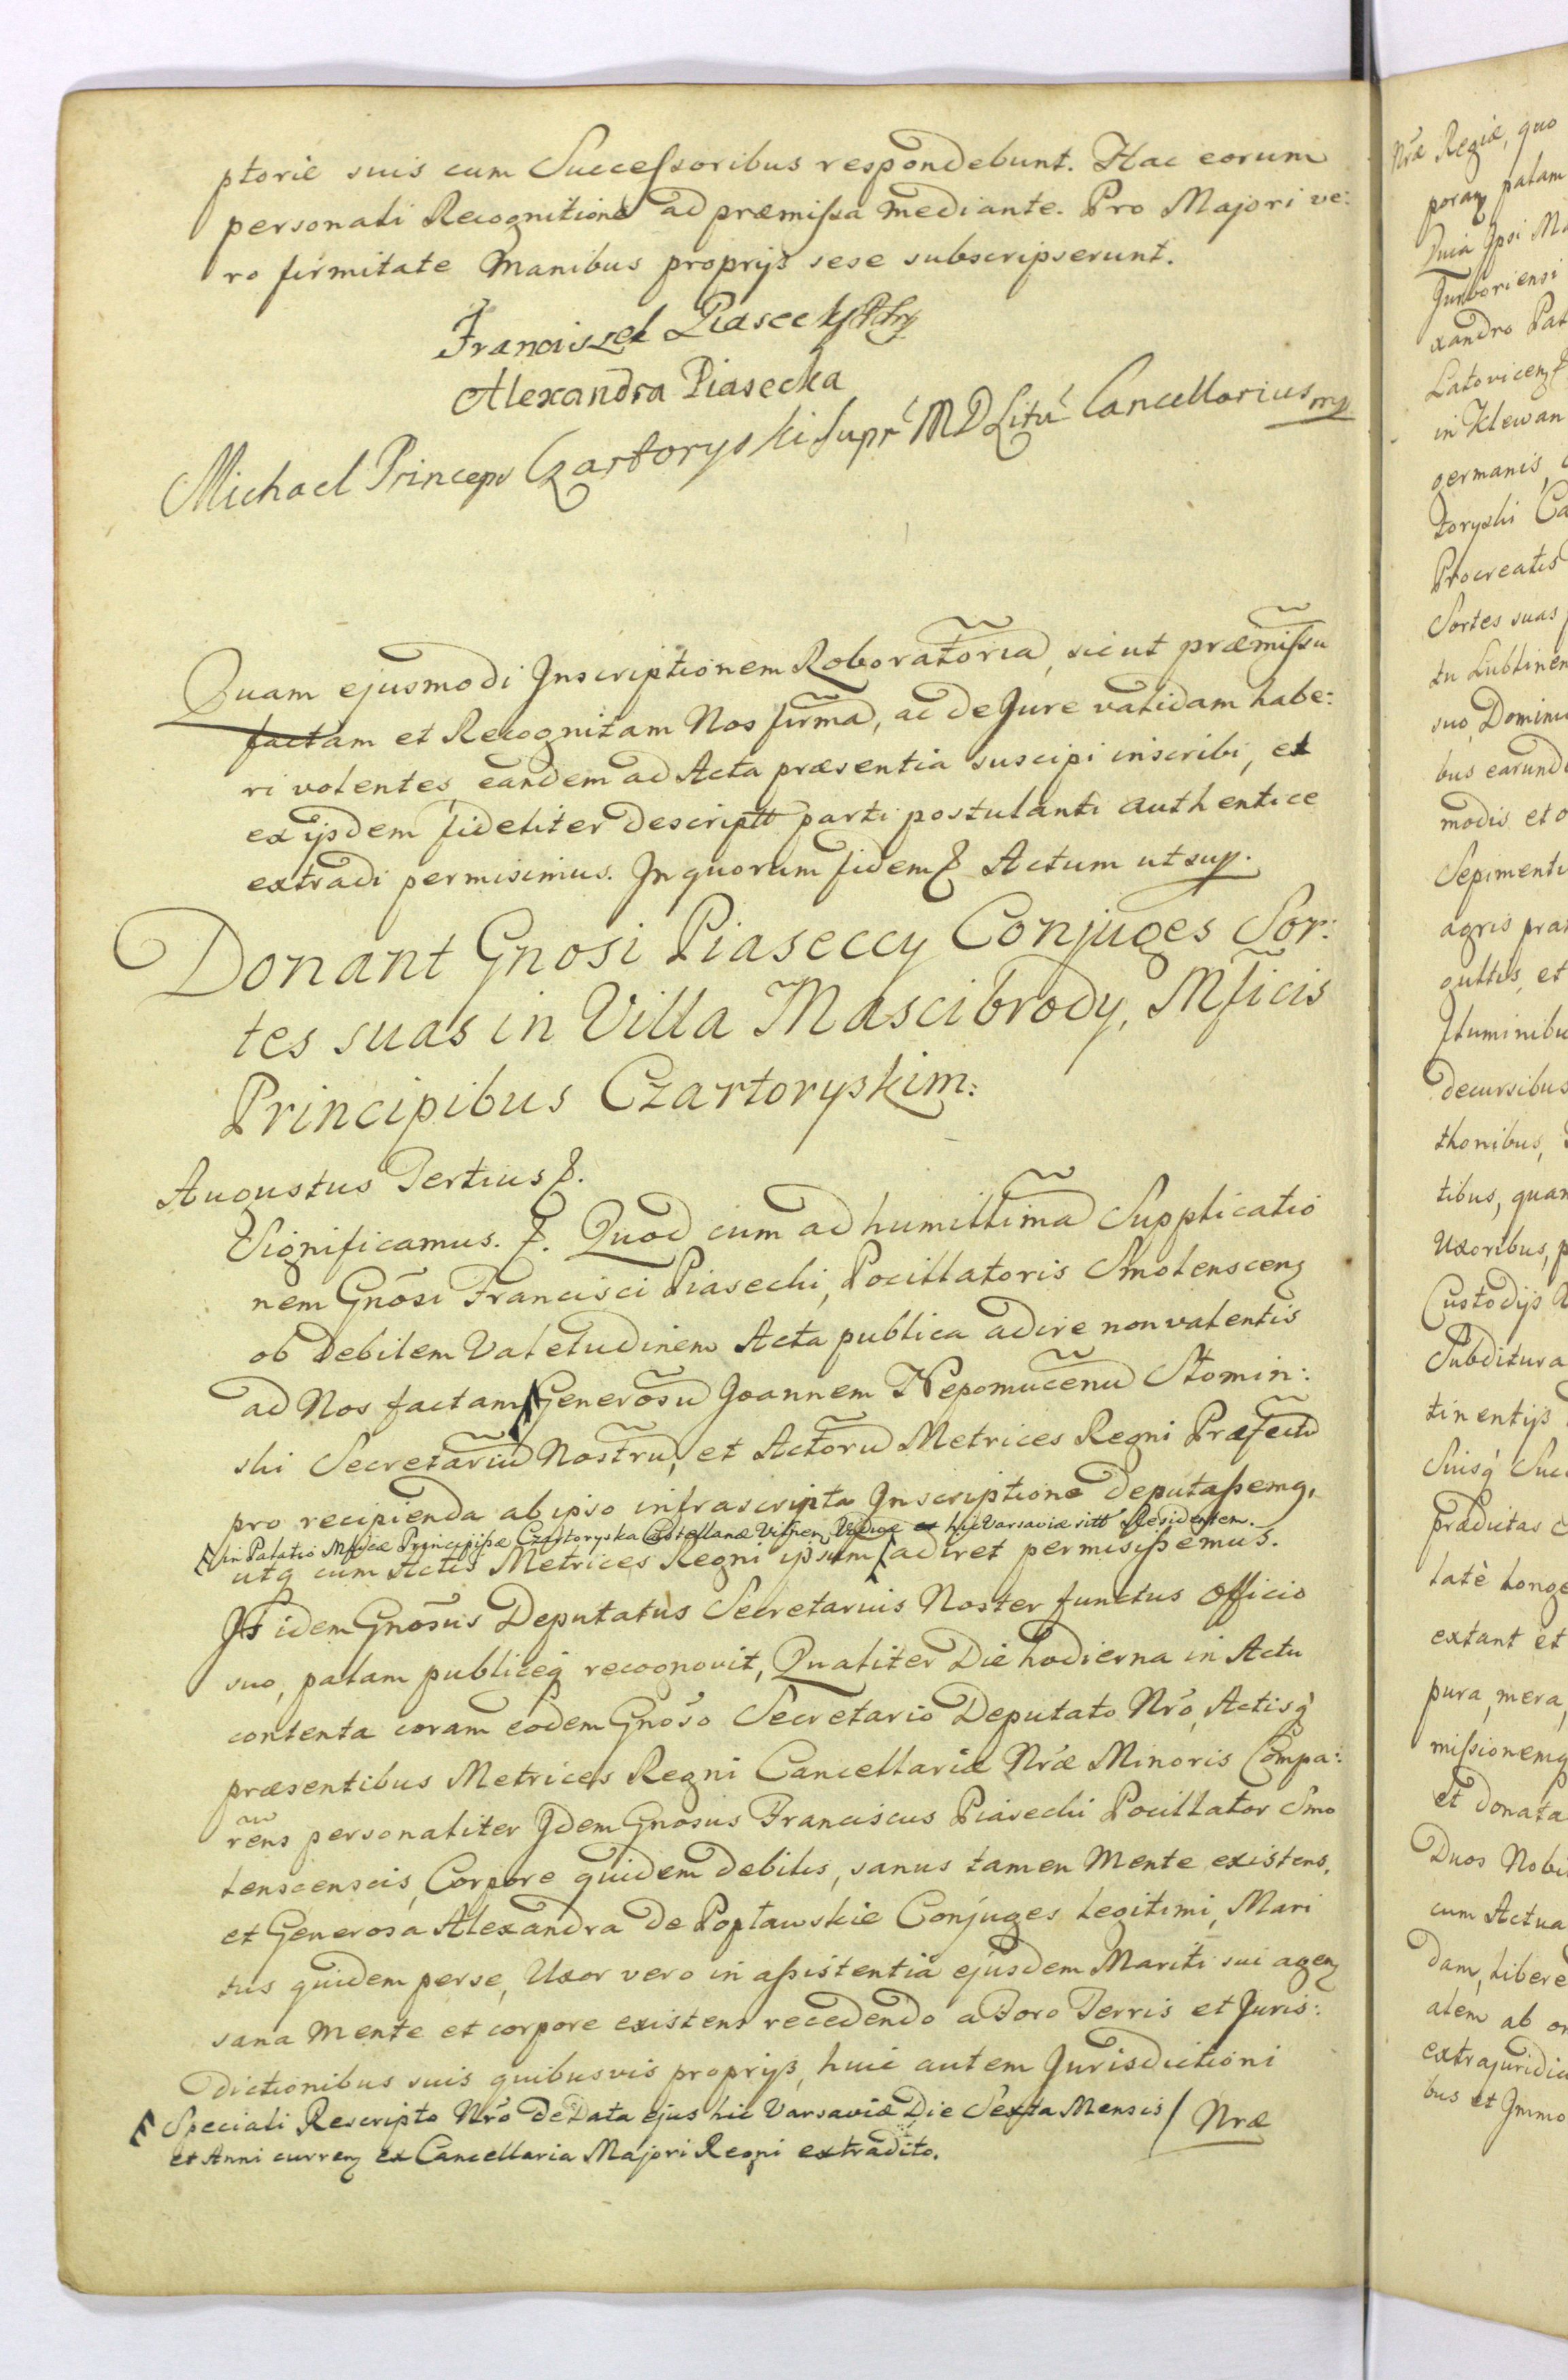 ptorie suis cum Successoribus respondebunt. Hac eorum
personali Recognitione ad præmissa mediante. Pro Majori ve:
ro firmitate Manibus proprijs sese subscripserunt.
Franciszek Piasecky
Alexandra Piasecka
Michael Princeps Czartoryski Supr MDLitu Cancellarius mp
Quam ejusmodi Inscriptionem Roboratoria, sicut præmissu
factam et Recognitam Nos firma, ac de Jure validam habe:
ri volentes eandem ad Acta præsentia suscipi inscribi, et
ex ijsdem fideliter descriptt parti postulanti authentice
extradi permisimus. In quorum fidem Actum ut sup.
Donant Gnosi Piaseccy Conjuges Sor:
tes suas in Villa Mascibrody, Mficis
Principibus Czartoryskim:
Augustus Tertius
Significamus. Quod cum ad humillima Supplicatio
nem Gnosi Francisci Piasecki, Pocillatoris Smolenscen
ob debilem Valetudinem Acta publica adire non valentis
ad Nos factam Generosu Joannem Nepomucenu Slomin:
ski Secretariu Nostru, et Actoru Metrices Regni Præfectu
pro recipienda ab ipso infrascripta Inscriptione deputassemq,
in Palatio Mficæ Principissæ Czartoryska Castellanæ Vilnen, Viduæ hic Varsaviæ sitt Residentem.
utq cum Actis Metrices Regni ipsum adiret permisissemus.
Is idem Gnosus Deputatus Secretarius Noster functus officio
suo, palam publiceq recognovit, Qualiter Die hodierna in Actu
contenta coram eodem Gnoso Secretario Deputato Nro, Actisq
præsentibus Metrices Regni Cancellariæ Nræ Minoris Compa:
rens personaliter Idem Gnosus Franciscus Piasecki Pocillator Smo
lenscensis, Corpore quidem debilis, sanus tamen Mente existens,
et Generosa Alexandra de Popławskie Conjuges legitimi, Mari
tus quidem per se, Uxor vero in assistentia ejusdem Mariti sui agen
sana Mente et corpore existens recedendo a Foro Terris et Juris:
dictionibus suis quibusvis proprijs, huic autem Jurisdictioni
Speciali Rescripto Nro de Data ejus hic Varsaviæ Die Sexta Mensis / Nræ
et Anni curren ex Cancellaria Majori Regni extradito.
Nræ Regiæ, quo
palam
Quia Ipsi
xandro
in Klewan
germanis
toryski
Procreatis
Sortes suas
suo, Domini
modis et
Sepimenti
agris
et
decursibus
thonibus,
tibus, quam
Uxoribus,
Custodijs
Subditura
tinentijs
Suisq Suc
prædictas
late longe
extant et
pura, mera,
missionemq
et donata
Duos Nobi
cum Actua
dam, libere
ab
extrajuridic
bus et Immo